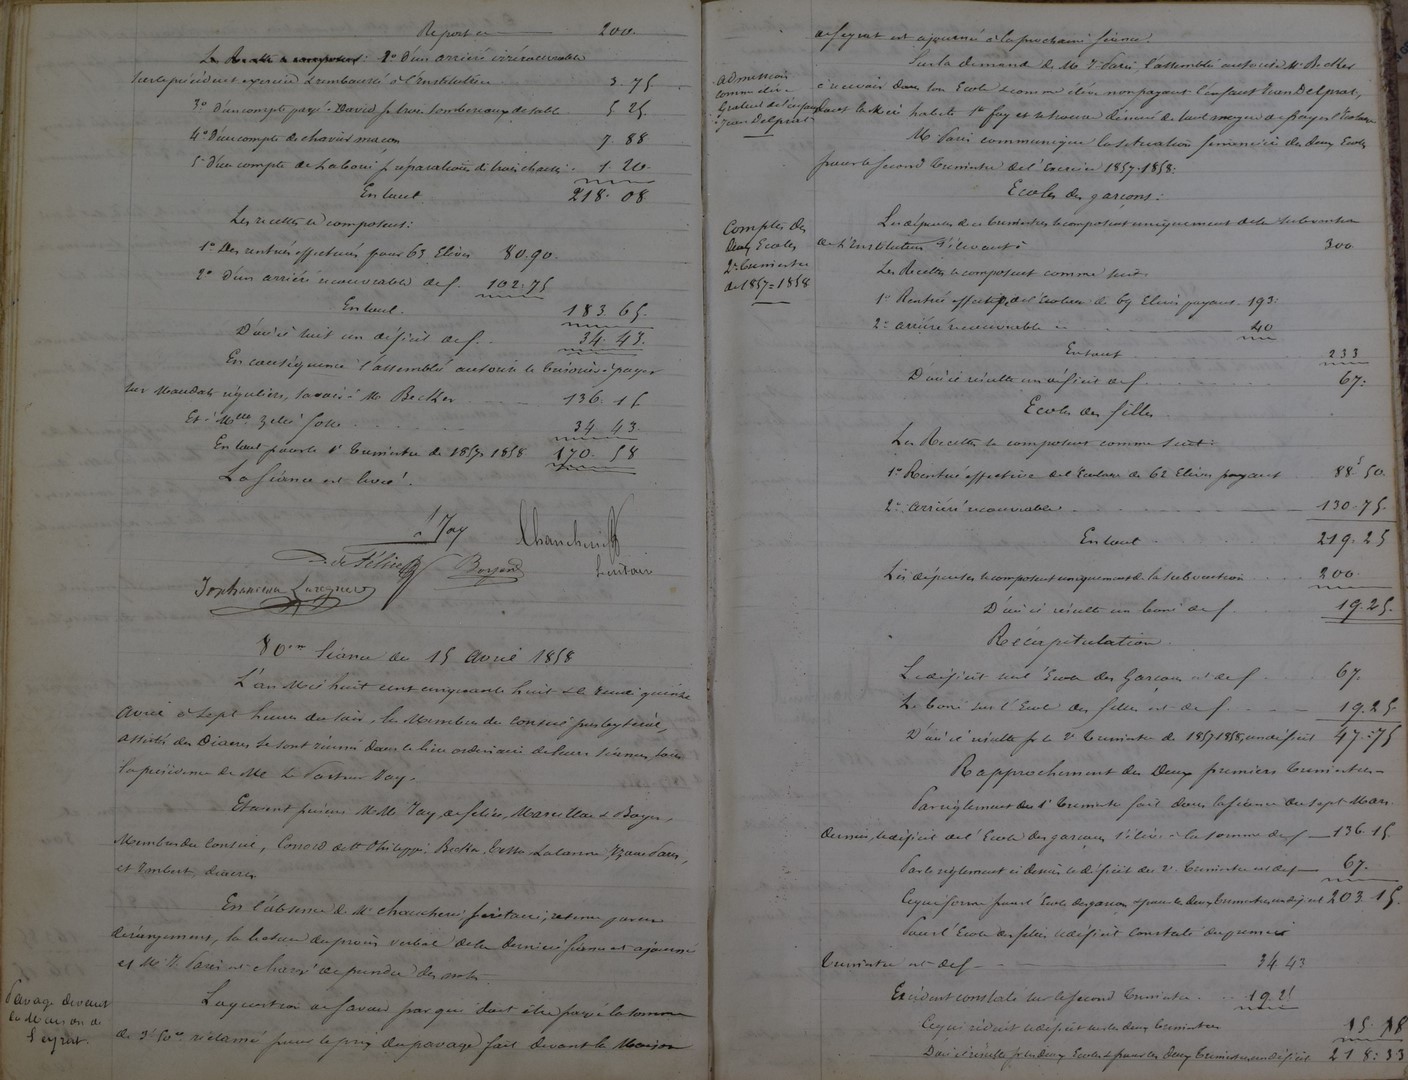 Report ci 200.
2° d'un arriéré irrécouvrable
sur le précédent exercice remboursé à l'Institutrice 3.75
3° d'un compte payé à David pr trois tombereaux de sable 5 25.
4° d'un compte de maçon 7 88
5° d'un compte de pr réparations de trois chaises 1. 20.
En tout 218. 08.
Les recettes se composent:
1° Des rentrées effectuées pour 63 Elèves 80.90
2° d'un arriéré recouvrable de f. 102.75
En tout. 183 65.
D'où il suit un déficit de f. 34. 43.
En conséquence l'assemblée autorise le trésorier à payer
sur Mandats réguliers, savoir à Mr Becker 136. 15
Et à Melle 34 43.
En tout pour le 1er trimestre de 1857-1858 170. 58
La séance est levée.
Jay
de Félice Boyer
80me Séance du 15 Avril 1858
L'an Mil huit cent cinquante huit & le jeudi quinze
Avril à sept heures du soir, les Membres du Conseil presbytéral,
assistés des Diacres se sont réunis dans le lieu ordinaire de leurs séances, sous
la présidence de Mr le Pasteur Jay.
Etaient présens MMrs Jay, de Félice, & Boyer,
Membres du Conseil, Conord Philippe Becker Lalanne,
et Imbert, diacres
En l'absence de Mr secrétaire, retenu par un
dérangement, la lecture du procès verbal de la dernière séance est ajournée
et Mr est chargé de prendre des notes.
Pavage devant
la Maison de
Seyrat.
La question de savoir par qui doit être payée la somme
de 3f 50c réclamée pour le prix du pavage fait devant la Maison
de Seyrat est ajournée à la prochaine séance.
Admission
comme élève
Gratuit de l'enfant
Jean Delprat
Sur la demande de Mr l'assemblée autorise Mr Becker
à recevoir dans son Ecole comme élève non payant l'enfant Jean Delprat,
dont la Mère habite Ste foy et se trouve dénuée de tout moyen de payer l'écolage
Mr communique la situation financière des deux Ecoles
pour le second trimestre de l'Exercice 1857-1858:
Ecoles des garçons:
Comptes des
Deux Ecoles
2e trimestre
de 1857=1858
Les dépenses de ce trimestre se composent uniquement de la subvention
de l'Instituteur s'élevant à 300
Les Recettes se composent comme suit:
1° Rentrée effective de l'écolage de 69 Elèves payans 193.
2° arriéré recouvrable ci 40
En tout 233
D'où il résulte un déficit de f. 67.
Ecoles des filles
Les Recettes se composent comme suit:
1° Rentrée effective de l'Ecolage de 62 Elèves payant 88 50
2° arriéré recouvrable 130.75
En tout 219.25
Les dépenses se composent uniquement de la subvention 200.
D'où il résulte un boni de f. 19.25.
Récapitulation.
Le déficit sur l'Ecole des Garçons est de f 67.
Le boni sur l'Ecole des filles est de f. 19.25
D'où il résulte pr le 2e trimestre de 1857 1858, un déficit 47.75
Rapprochement des Deux premiers trimestres
Par règlement du 1er trimestre fait dans la séance du sept Mars
dernier, le déficit de l'Ecole des garçons s'élève à la somme de f 136.15
Par le règlement ci dessus le déficit du 2e trimestre est de f 67.
Ce qui forme pour l'Ecole des garçons & pour les deux trimestres, un déficit 203 15.
Pour l'Ecole des filles le déficit constaté du premier
trimestre est de f 34 43
Excédent constaté sur le second trimestre 19.25
Ce qui réduit le déficit sur les deux trimestres 15. 18
D'où il résulte pr les deux Ecoles & pour les deux trimestres, un déficit 218: 33